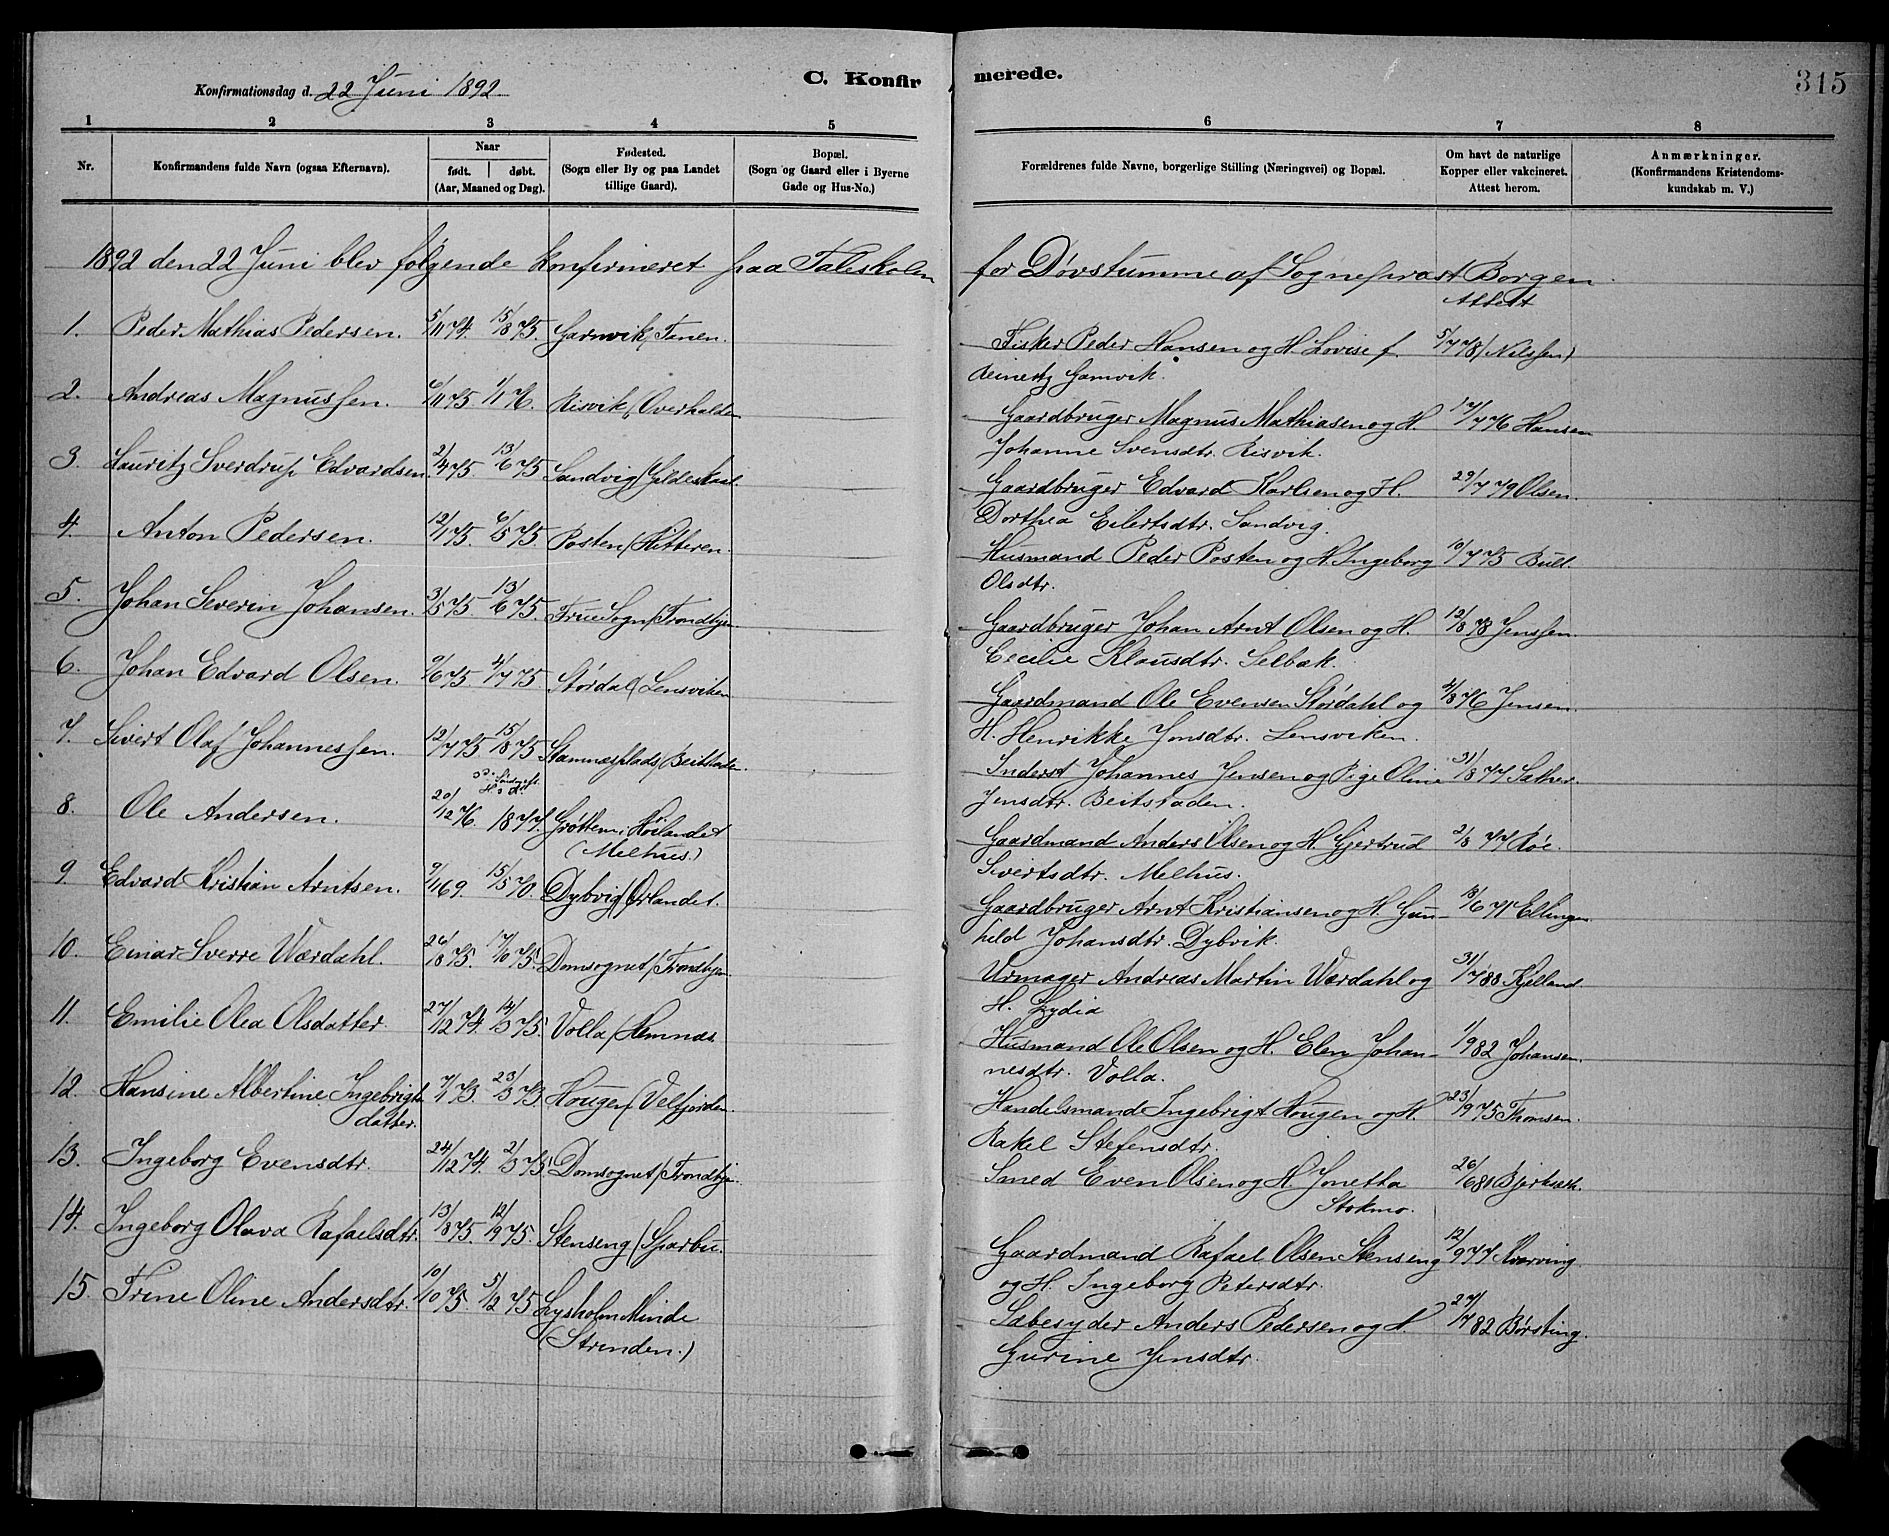 Konfirmationsdag d. 22 Juni 1892.
C. Konfirmerede.
315
1 2 3 4 5 6 7 8
Nr.
Konfirmandens fulde Navn (ogsaa Efternavn).
Naar
født. døbt.
(Aar, Maaned og Dag).
Fødested.
(Sogn eller By og paa Landet
tillige Gaard).
Bopæl.
(Sogn og Gaard eller i Byerne
Gade og Hus-No.)
Forældrenes fulde Navne, borgerlige Stilling (Næringsvei) og Bopæl.
Om havt de naturlige
Kopper eller vakcineret.
Attest herom.
Anmærkninger.
(Konfirmandens Kristendoms-
kundskab m. V.)
1892 den 22 Juni blev følgende konfirmeret paa Taleskolen for Døvstumme af Sognepræst Borgen
Attest
1. Peder Mathias Pedersen. 5/11 74. 15/8 75. Gamvik, Tanen. Fisker Peder Hansen og H. Lovise f. 5/7 78 (Nilssen)
Reinertz Gamvik.
2. Andreas Magnussen. 6/11 75. 1/1 76. Risvik, Overhalden Gaardbruger Magnus Mathiasen og H. 17/7 76 Hansen
Johanne Svensdtr. Risvik.
3. Lauritz Sverdrup Edvardsen. 2/4 75. 13/6 75. Sandvig (Gildeskaal. Gaardbruger Edvard Karlsen og H. 29/7 79 Olsen.
Dorthea Eilertsdtr. Sandvig.
4. Anton Pedersen. 12/1 75. 6/5 75. Posten (Hitteren. Husmand Peder Posten og H. Ingeborg 10/7 75 Bull.
Olsdtr.
5. Johan Severin Johansen. 3/5 75. 13/6 75. Frue Sogn (Trondhjem Gaardbruger Johan Arnt Olsen og H. 12/8 78 Jenssen.
Cecilie Klausdtr. Selbak.
6. Johan Edvard Olsen. 9/6 75. 4/7 75. Stordal (Lensviken Gaardmand Ole Evensen Stordahl og 4/8 76 Jensen.
H. Henrikke Jonsdtr. Lensviken.
7. Sivert Olaf Johannessen. 12/7 75 15/8 75 Stamnesplads (Beitstaden. Inderst Johannes Jensen og Pige Oline 31/8 77 Sather.
Jensdtr. Beitstaden.
8. Ole Andersen. 20/12 76. 1877. Grøttem i Hølandet
(Melhus.) Gaardmand Anders Olsen og H. Gjertrud 2/8 77 Røe.
Sivertsdtr. Melhus.
9. Edvard Kristian Arntsen. 9/11 69. 15/5 70. Dybvig (Ørlandet. Gaardbruger Arnt Kristiansen og H. Gun- 13/6 71 Ellingsen
hild Johansdtr. Dybvik.
10. Einar Sverre Værdahl. 26/8 75. 17/10 75. Domsognet (Trondhjem Urmager Andreas Martin Værdahl og 31/7 83 Kjelland.
H. Lydia
11. Emilie Olea Olsdatter. 27/12 74. 14/3 75. Volla (Hemnæs Husmand Ole Olsen og H. Elen Johan- 1/9 82 Johansen.
nesdtr. Volla.
12. Hansine Albertine Ingebrigts
datter. 7/1 73. 23/3 73. Hougen (Velfjorden. Handelsmand Ingebrigt Hougen og H. 23/9 75 Thomsen.
Rakel Stefensdtr.
13. Ingeborg Evensdtr. 24/12 74. 2/3 75. Domsognet (Trondhjem. Smed Even Olsen og H. Jonetta 26/6 81 Bjerkseth.
Stokmo.
14. Ingeborg Olava Rafaelsdtr. 13/8 75. 12/9 75. Stenseng (Sparbu. Gaardmand Rafael Olsen Stenseng 12/9 77 Kvarving.
og H. Ingeborg Petersdtr.
15. Trine Oline Andersdtr. 10/10 75. 5/12 75. Lysholm Minde
(Strinden.) Sæbesyder Anders Pedersen og H. 27/7 82 Børsting.
Gurine Jensdtr.